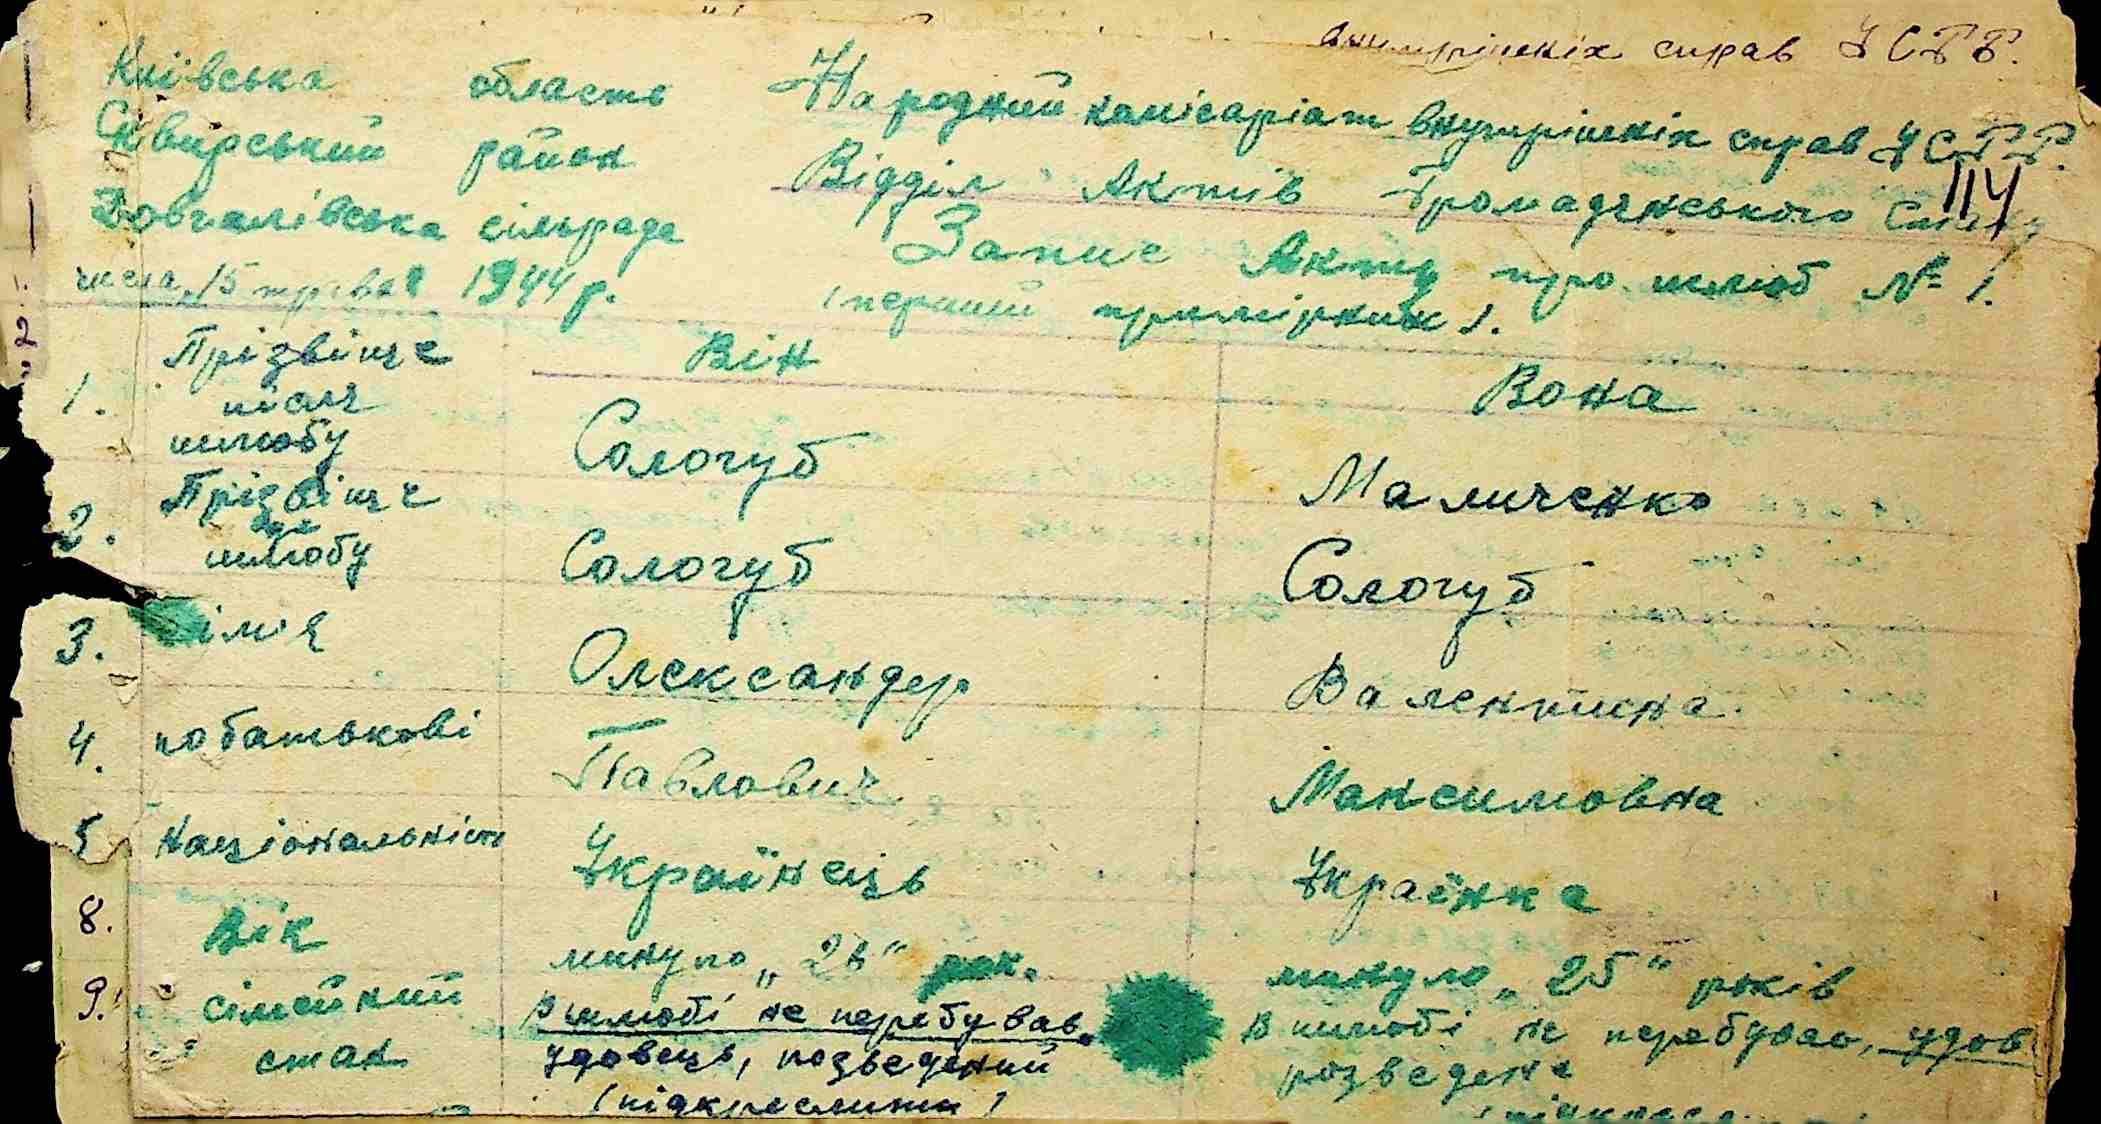 внутрішніх справ УСРР.
Київська область
Сквирський район
Довгалівська сільрада
числа, 15 травня 1944 р.
Народний комісаріат внутрішніх справ УСРР.
Відділ Актів Громадянського Стану
114
Запис Акту про шлюб № 1.
(перший примірник).
Він
Вона
1. Прізвіще
після
шлюбу
Сологуб
Маличенко
2. Прізвіще
шлюбу
Сологуб
Сологуб
3. імія
Олександер
Валентина
4. по батькові
Павлович
Максимовна
5 Національність
Українець
Українка
8. Вік
минуло „26“ рок.
минуло „25“ років
9. сімейний
стан
В шлюбі не перебував,
удовець, розведений
(підкреслити)
В шлюбі не перебувао, удов
розведена